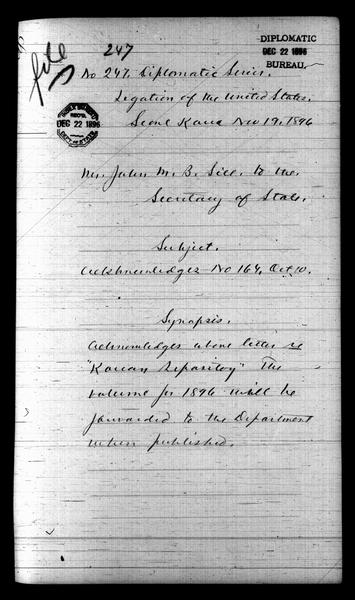 file
247
DIPLOMATIC
DEC 22 1896
BUREAU.
No 247. Diplomatic Series.
Legation of the United States.
Seoul Korea Nov 19. 1896
DEC 22 1896
DEPT. OF STATE
Mr. John M. B. Sill. to the
Secretary of State.
Subject.
Acknowledges No 164, Oct. 10.
Synopsis.
Acknowledges above letter re
"Korean Repository" The
volume for 1896 will be
forwarded to the Department
when published.